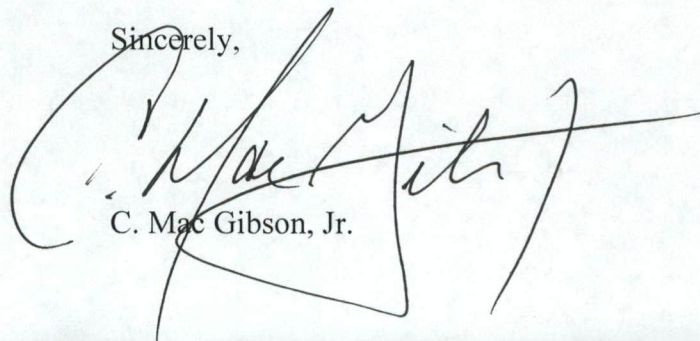 Sincerely,
C. Mac Gib
C. Mac Gibson, Jr.